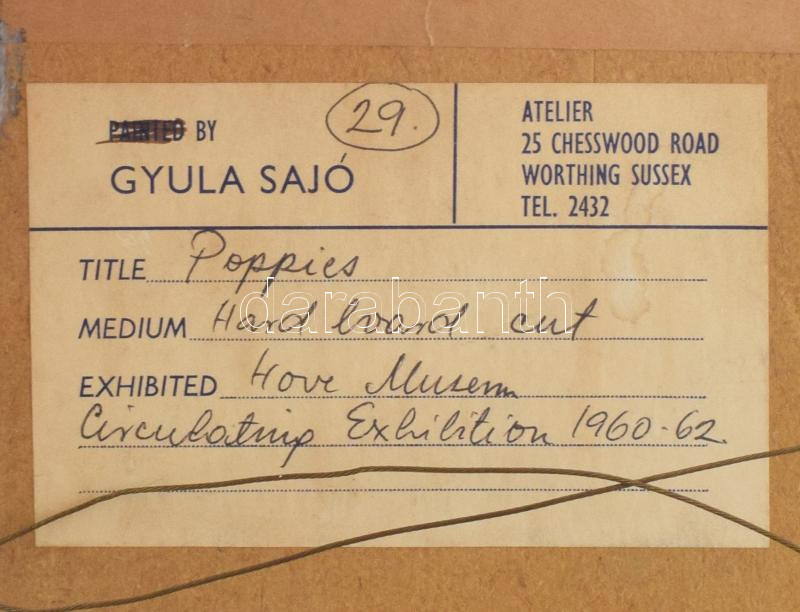 PAINTED BY
29.
GYULA SAJÓ
ATELIER
25 CHESSWOOD ROAD
WORTHING SUSSEX
TEL. 2432
TITLE Poppies
darabanth
MEDIUM Hard board cut
EXHIBITED Hove Museum
Circulating Exhibition 1960-62.